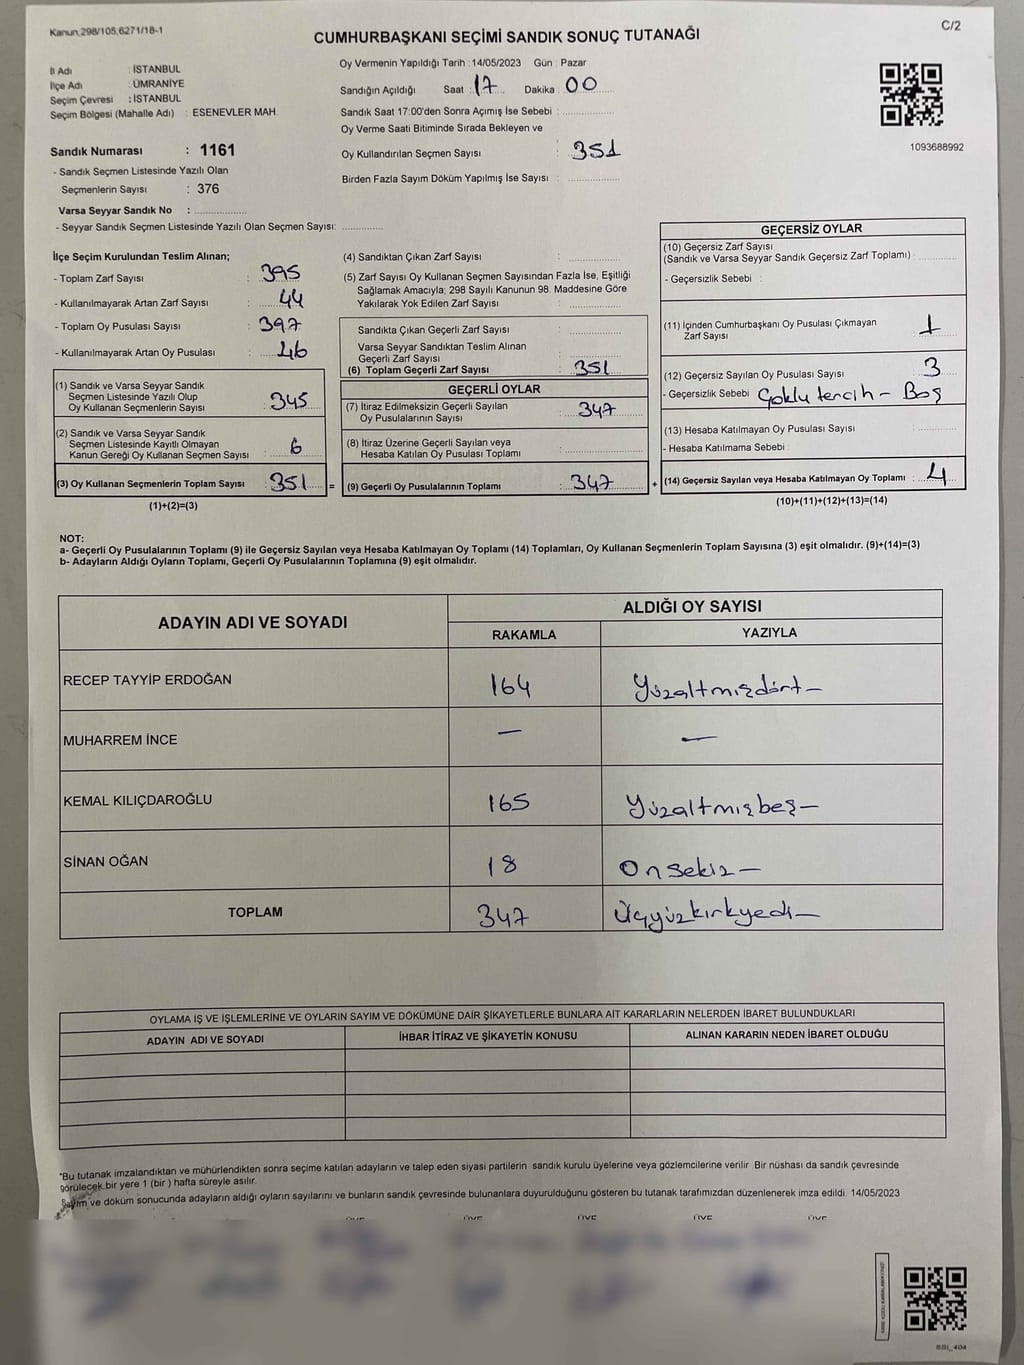 Kanun,298/105,6271/18-1
C/2
CUMHURBAŞKANI SEÇİMİ SANDIK SONUÇ TUTANAĞI
İl Adı : İSTANBUL
İlçe Adı : ÜMRANİYE
Seçim Çevresi : İSTANBUL
Seçim Bölgesi (Mahalle Adı) : ESENEVLER MAH.
Sandık Numarası : 1161
- Sandık Seçmen Listesinde Yazılı Olan
Seçmenlerin Sayısı : 376
Varsa Seyyar Sandık No :
- Seyyar Sandık Seçmen Listesinde Yazılı Olan Seçmen Sayısı:
Oy Vermenin Yapıldığı Tarih : 14/05/2023 Gün : Pazar
Sandığın Açıldığı Saat : 17 Dakika : 00
Sandık Saat 17:00'den Sonra Açımış İse Sebebi :
Oy Verme Saati Bitiminde Sırada Bekleyen ve
Oy Kullandırılan Seçmen Sayısı : 351
Birden Fazla Sayım Döküm Yapılmış İse Sayısı :
1093688992
İlçe Seçim Kurulundan Teslim Alınan;
- Toplam Zarf Sayısı : 395
- Kullanılmayarak Artan Zarf Sayısı : 44
- Toplam Oy Pusulası Sayısı : 397
- Kullanılmayarak Artan Oy Pusulası : 46
(1) Sandık ve Varsa Seyyar Sandık
Seçmen Listesinde Yazılı Olup
Oy Kullanan Seçmenlerin Sayısı : 345
(2) Sandık ve Varsa Seyyar Sandık
Seçmen Listesinde Kayıtlı Olmayan
Kanun Gereği Oy Kullanan Seçmen Sayısı : 6
(3) Oy Kullanan Seçmenlerin Toplam Sayısı : 351 =
(1)+(2)=(3)
(4) Sandıktan Çıkan Zarf Sayısı :
(5) Zarf Sayısı Oy Kullanan Seçmen Sayısından Fazla İse, Eşitliği
Sağlamak Amacıyla; 298 Sayılı Kanunun 98. Maddesine Göre
Yakılarak Yok Edilen Zarf Sayısı :
Sandıkta Çıkan Geçerli Zarf Sayısı :
Varsa Seyyar Sandıktan Teslim Alınan
Geçerli Zarf Sayısı :
(6) Toplam Geçerli Zarf Sayısı : 351
GEÇERLİ OYLAR
(7) İtiraz Edilmeksizin Geçerli Sayılan
Oy Pusulalarının Sayısı : 347
(8) İtiraz Üzerine Geçerli Sayılan veya
Hesaba Katılan Oy Pusulası Toplamı :
(9) Geçerli Oy Pusulalarının Toplamı : 347 +
GEÇERSİZ OYLAR
(10) Geçersiz Zarf Sayısı
(Sandık ve Varsa Seyyar Sandık Geçersiz Zarf Toplamı) :
- Geçersizlik Sebebi :
(11) İçinden Cumhurbaşkanı Oy Pusulası Çıkmayan
Zarf Sayısı : 1
(12) Geçersiz Sayılan Oy Pusulası Sayısı : 3
- Geçersizlik Sebebi : Çoklu tercih - Boş
(13) Hesaba Katılmayan Oy Pusulası Sayısı :
- Hesaba Katılmama Sebebi :
(14) Geçersiz Sayılan veya Hesaba Katılmayan Oy Toplamı : 4
(10)+(11)+(12)+(13)=(14)
NOT:
a- Geçerli Oy Pusulalarının Toplamı (9) ile Geçersiz Sayılan veya Hesaba Katılmayan Oy Toplamı (14) Toplamları, Oy Kullanan Seçmenlerin Toplam Sayısına (3) eşit olmalıdır. (9)+(14)=(3)
b- Adayların Aldığı Oyların Toplamı, Geçerli Oy Pusulalarının Toplamına (9) eşit olmalıdır.
ADAYIN ADI VE SOYADI ALDIĞI OY SAYISI
RAKAMLA YAZIYLA
RECEP TAYYİP ERDOĞAN 164 Yüzaltmışdört -
MUHARREM İNCE — —
KEMAL KILIÇDAROĞLU 165 Yüzaltmışbeş -
SİNAN OĞAN 18 Onsekiz -
TOPLAM 347 Üçyüzkırkyedi -
OYLAMA İŞ VE İŞLEMLERİNE VE OYLARIN SAYIM VE DÖKÜMÜNE DAİR ŞİKAYETLERLE BUNLARA AİT KARARLARIN NELERDEN İBARET BULUNDUKLARI
ADAYIN ADI VE SOYADI İHBAR İTİRAZ VE ŞİKAYETİN KONUSU ALINAN KARARIN NEDEN İBARET OLDUĞU
*Bu tutanak imzalandıktan ve mühürlendikten sonra seçime katılan adayların ve talep eden siyasi partilerin sandık kurulu üyelerine veya gözlemcilerine verilir. Bir nüshası da sandık çevresinde
görülecek bir yere 1 (bir ) hafta süreyle asılır.
Sayım ve döküm sonucunda adayların aldığı oyların sayılarını ve bunların sandık çevresinde bulunanlara duyurulduğunu gösteren bu tutanak tarafımızdan düzenlenerek imza edildi. 14/05/2023
ÜYE ÜYE ÜYE ÜYE ÜYE